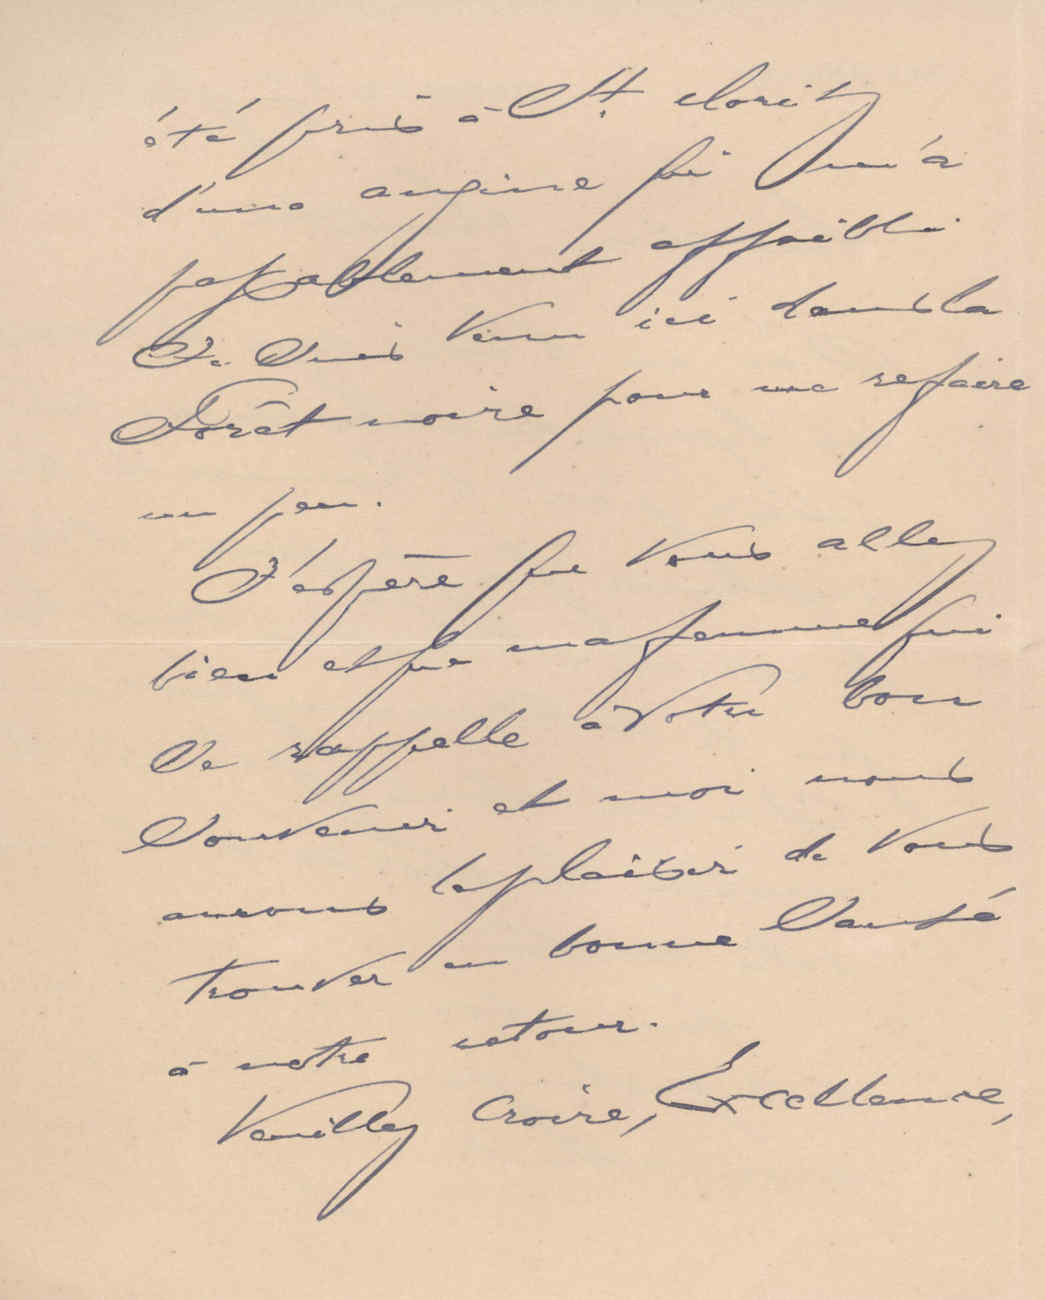 été pris à St. Moritz
d'une angine qui m'a
passablement affaibli
Je suis venu ici dans la
Forêt noire pour me refaire
un peu.
J'espère que vous allez
bien et que ma femme qui
se rappelle à votre bon
souvenir et moi nous
aurons le plaisir de vous
trouver en bonne santé
à notre retour.
Veuillez croire, Excellence,